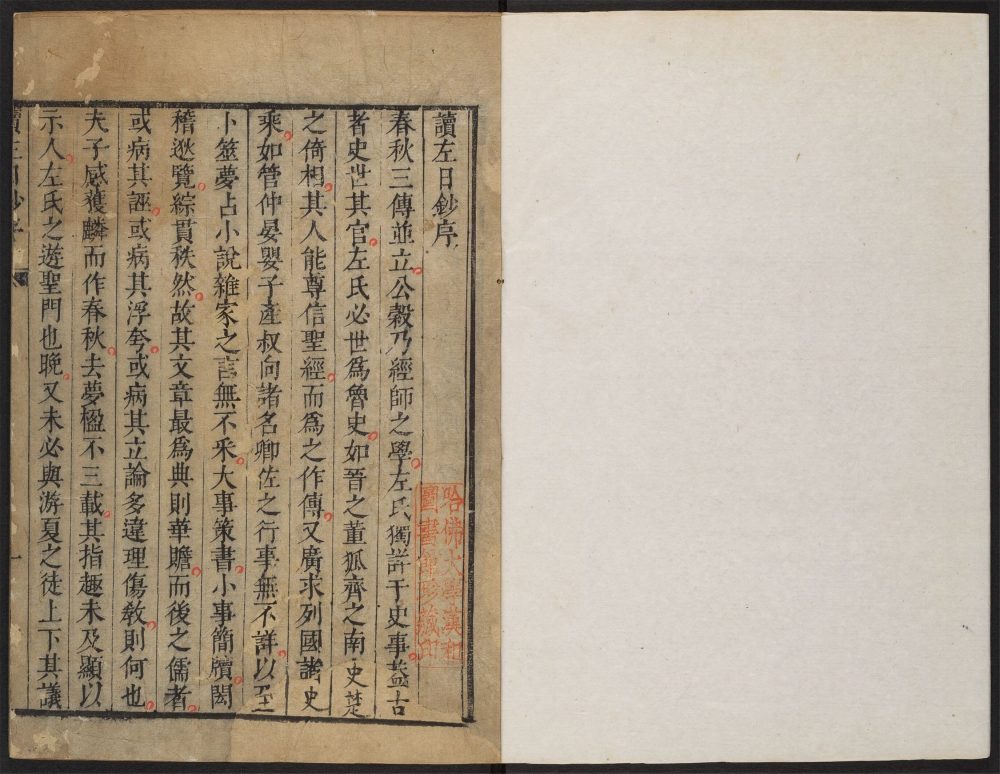 讀左日鈔序
春秋三傳並立公榖乃經師之學左氏獨詳于史事葢古
者史世其官左氏必世爲魯史如晉之董狐齊之南史楚
之倚相其人能尊信聖經而爲之作傳又廣求列國諸史
乘如管仲晏嬰子產叔向諸名卿佐之行事無不詳以至
卜筮夢占小說雜家之言無不采大事策書小事簡牘閎
稽逖覽綜貫秩然故其文章最爲典則華贍而後之儒者
或病其誣或病其浮夸或病其立論多違理傷敎則何也
夫子感獲麟而作春秋去夢楹不三載其指趣未及顯以
示人左氏之遊聖門也晚又未必與游夏之徒上下其議
讀左日鈔序
一
哈佛大學漢和
圖書館珍藏印